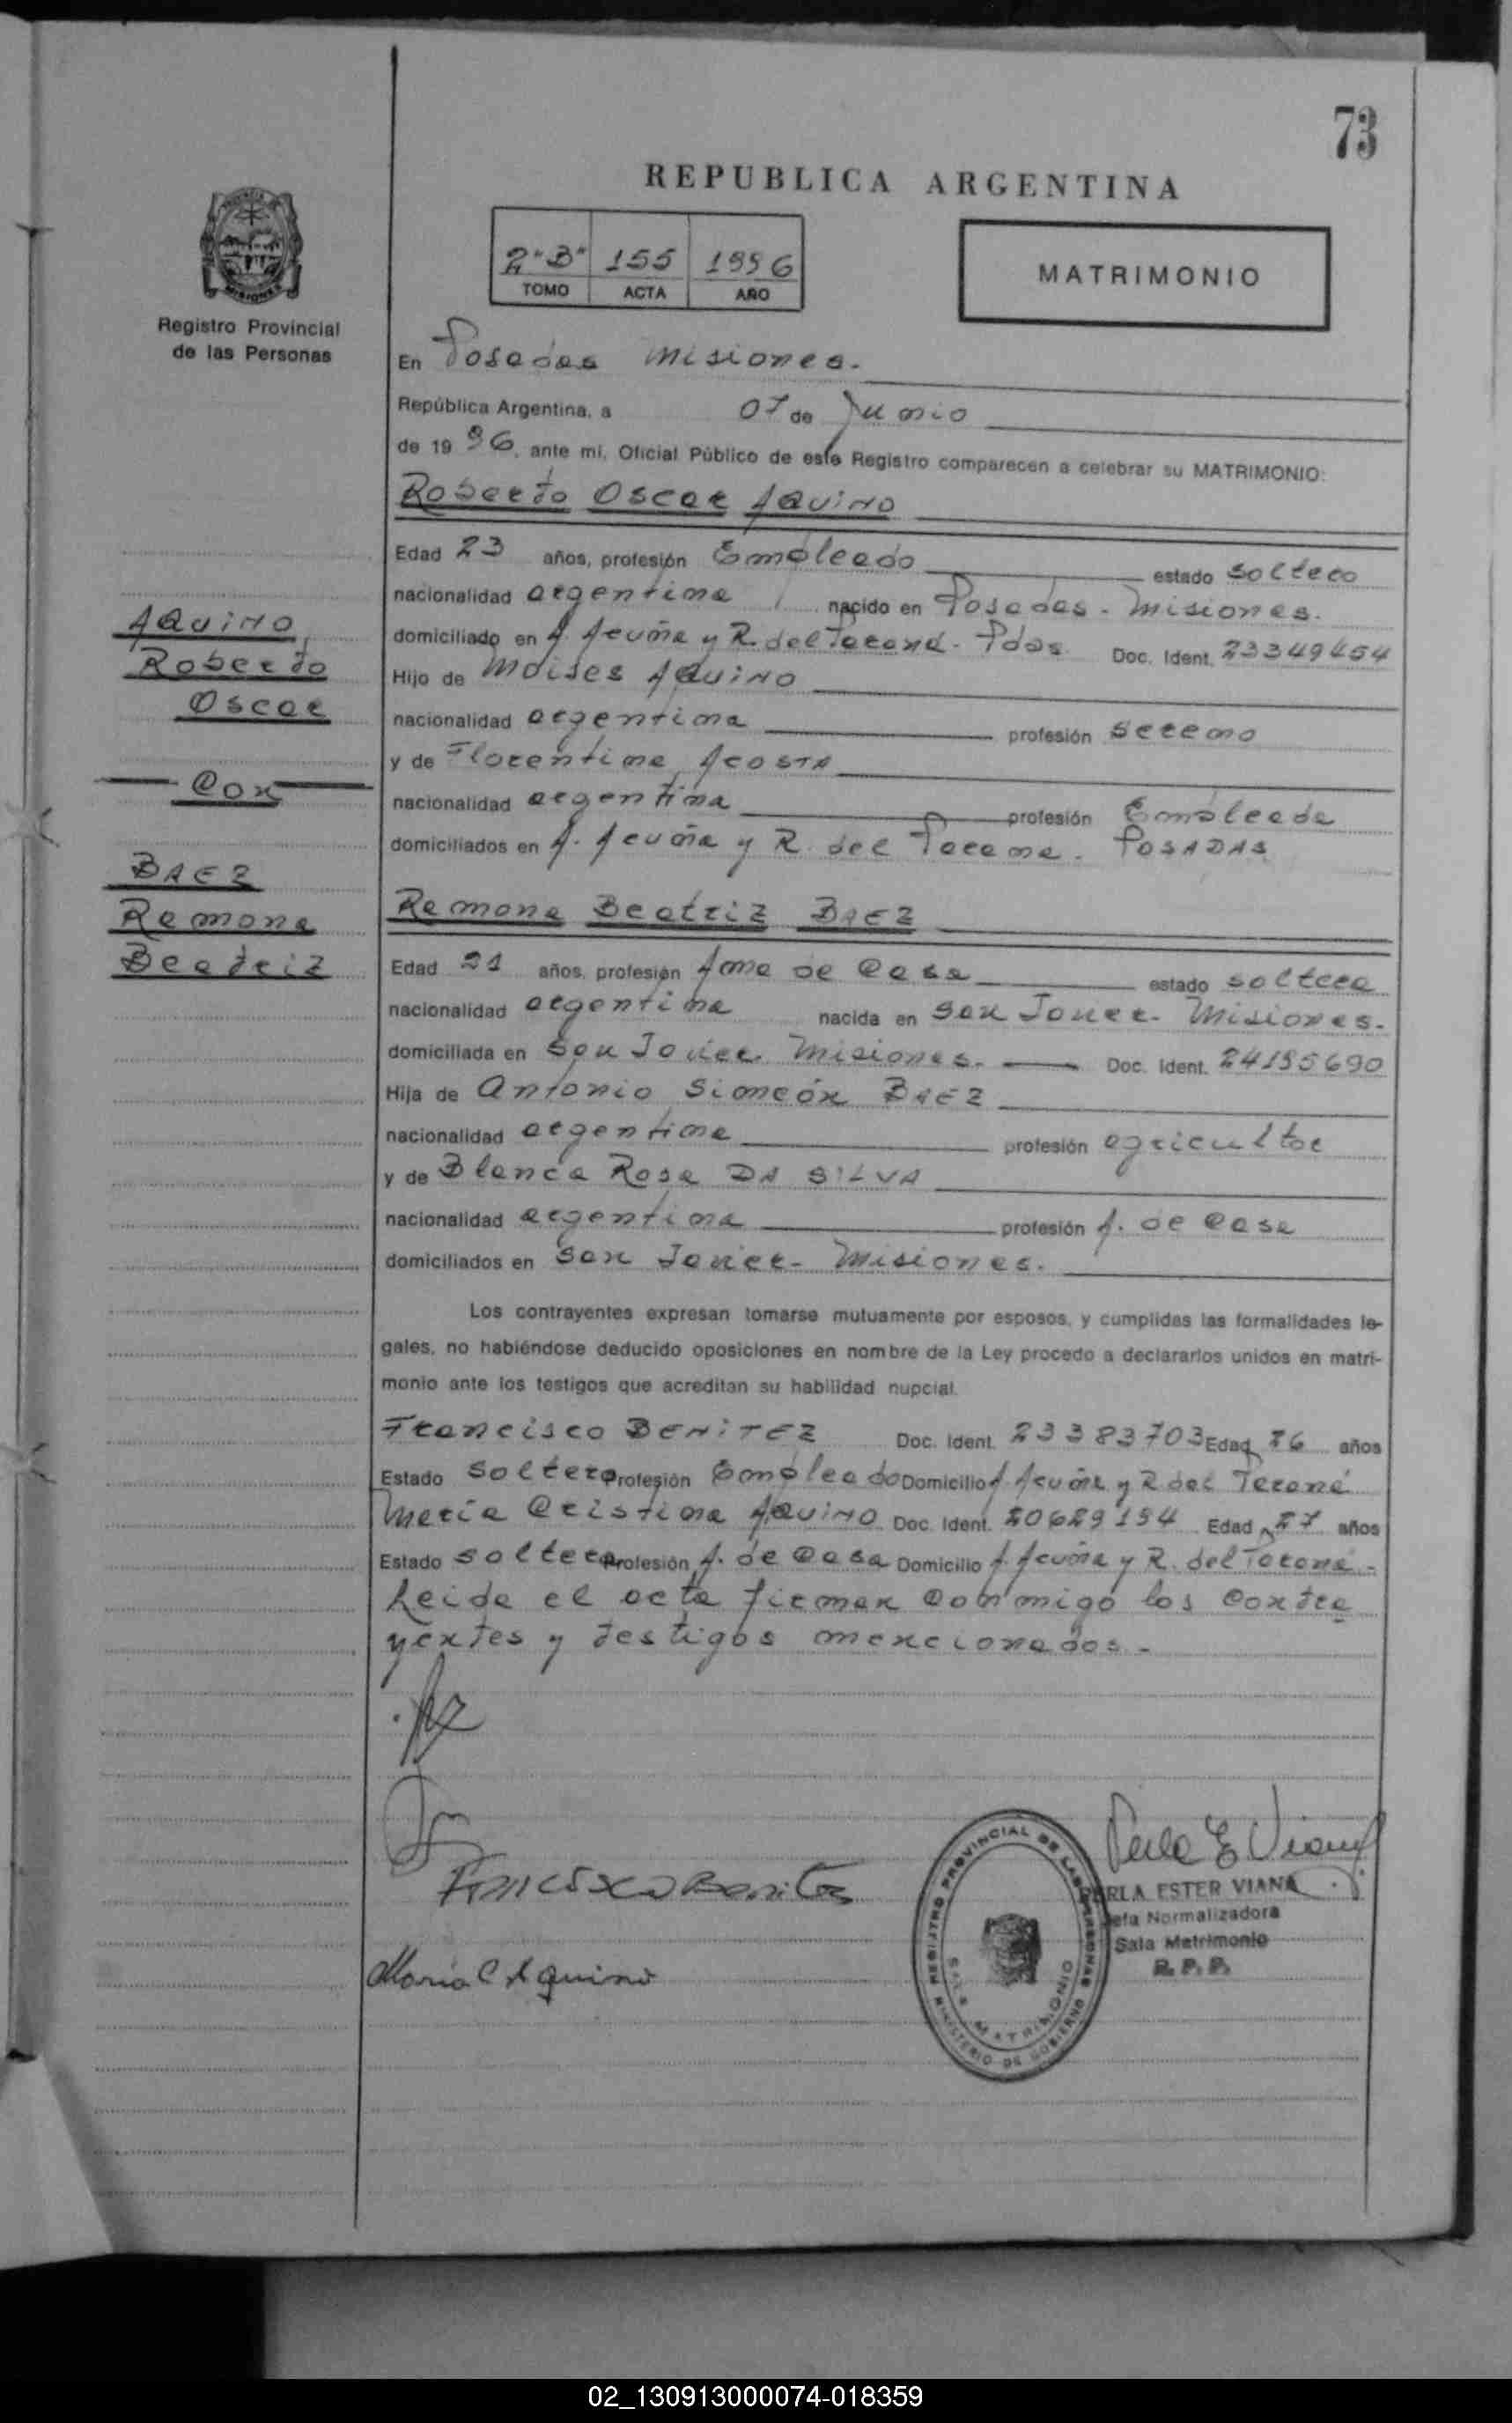 73
REPUBLICA ARGENTINA
2 "B" 155 1996
TOMO ACTA AÑO
MATRIMONIO
Registro Provincial
de las Personas
En Posadas Misiones.
República Argentina, a 07 de Junio
de 19 96, ante mi, Oficial Público de este Registro comparecen a celebrar su MATRIMONIO:
Roberto Oscar AQUINO
Edad 23 años, profesión Empleado estado soltero
nacionalidad argentina nacido en Posadas - Misiones.
domiciliado en A. Acuña y R. del Paraná - Pdas. Doc. Ident. 23349454
Hijo de Moises AQUINO
nacionalidad argentina profesión sereno
y de Florentina ACOSTA
nacionalidad argentina profesión Empleada
domiciliados en A. Acuña y R. del Parana. POSADAS
AQUINO
Roberto
Oscar
Con
BAEZ
Ramona
Beatriz
Ramona Beatriz BAEZ
Edad 21 años, profesión Ama de Casa estado soltera
nacionalidad argentina nacida en San Javier - Misiones.
domiciliada en San Javier Misiones. Doc. Ident. 24195690
Hija de Antonio Simeón BAEZ
nacionalidad argentina profesión agricultor
y de Blanca Rosa DA SILVA
nacionalidad argentina profesión A. de Casa
domiciliados en San Javier - Misiones.
Los contrayentes expresan tomarse mutuamente por esposos, y cumplidas las formalidades le-
gales, no habiéndose deducido oposiciones en nombre de la Ley procedo a declararlos unidos en matri-
monio ante los testigos que acreditan su habilidad nupcial.
Francisco BENITEZ Doc. Ident. 23383703 Edad 26 años
Estado soltero Profesión Empleado Domicilio A. Acuña y R. del Paraná
María Cristina AQUINO Doc. Ident. 20629194 Edad 27 años
Estado soltera Profesión A. de Casa Domicilio A. Acuña y R. del Paraná -
Leida el acta firman conmigo los contra
yentes y testigos mencionados -
Francisco Benitez
Maria C Aquino
Perla E Viana
PERLA ESTER VIANA
Jefa Normalizadora
Sala Matrimonio
R. P. P.
REGISTRO PROVINCIAL DE LAS PERSONAS
SALA MATRIMONIO
MINISTERIO DE GOBIERNO
02_130913000074-018359